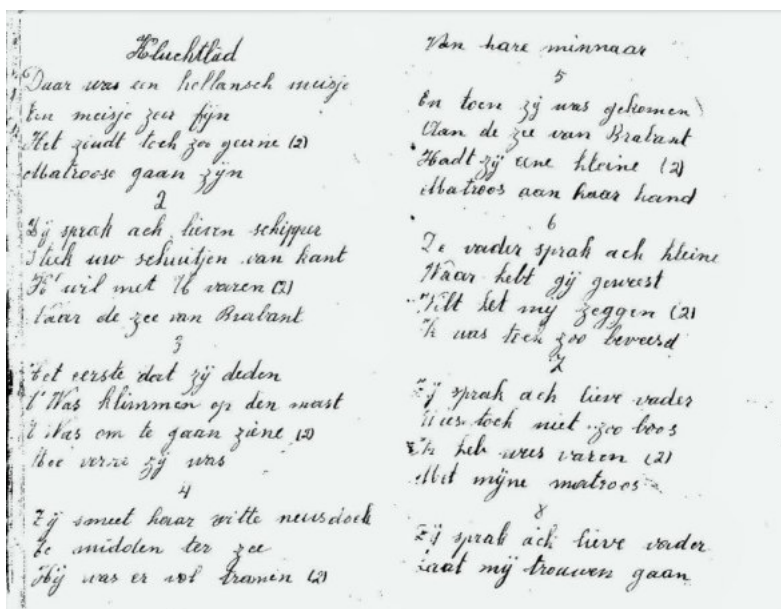 Kluchtlied
Daar was een hollansch meisje
Een meisje zeer fijn
Het zindt toch zoo geerne (2)
Matroose gaan zijn
2
Zij sprak ach lieven schipper
Stek uw schuitjen van kant
'K wil met U varen (2)
Naar de zee van Brabant
3
Het eerste dat zij deden
't Was klimmen op den mast
't Was om te gaan ziene (2)
Hoe verre zij was
4
Zij smeet haar witte neusdoek
Te midden ter zee
Hij was er vol tranen (2)
Van hare minnaar
5
En toen zij was gekomen
Aan de zee van Brabant
Hadt zij eene kleine (2)
Matroos aan haar hand
6
De vader sprak ach kleine
Waar hebt gij geweest
Wilt het mij zeggen (2)
'k was toch zoo beveesd
7
Zij sprak ach lieve vader
Wees toch niet zoo boos
'K heb wees varen (2)
Met mijne matroos
8
Zij sprak ach lieve vader
Laat mij trouwen gaan